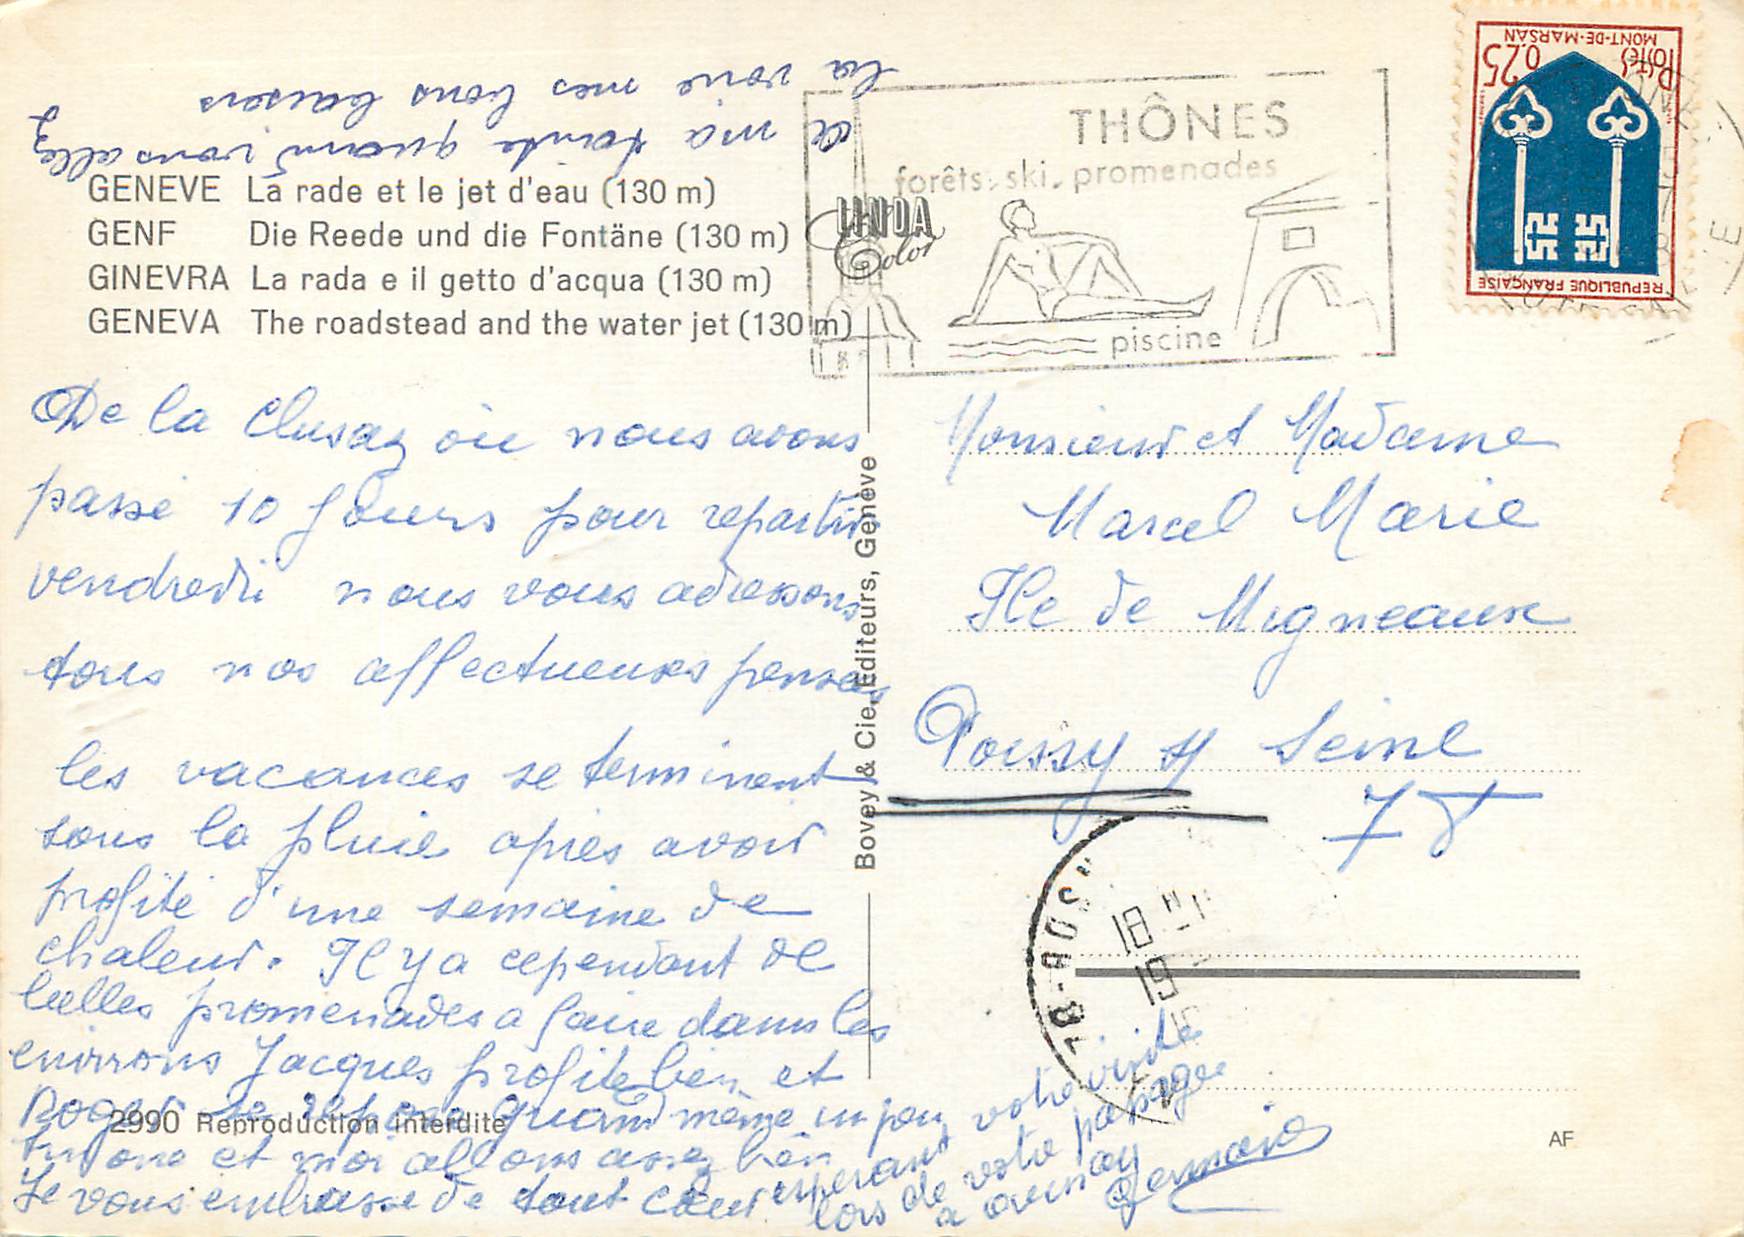 à ma tante quand vous allez
la voir mes bons baisers
GENEVE La rade et le jet d'eau (130 m)
GENF Die Reede und die Fontäne (130 m)
GINEVRA La rada e il getto d'acqua (130 m)
GENEVA The roadstead and the water jet (130 m)
LINDA
Color
THÔNES
forêts. ski. promenades
piscine
MONT-DE-MARSAN
Postes
0,25
REPUBLIQUE FRANÇAISE
De la Clusaz où nous avons
passé 10 Jours pour repartir
vendredi nous vous adressons
tous nos affectueuses pensées
les vacances se terminent
sous la pluie après avoir
profité d'une semaine de
chaleur. Il y a cependant de
belles promenades a faire dans les
environs Jacques profite bien et
Roger se repose quand même un peu
et moi allons assez bien
Je vous embrasse de tout cœur espérant votre visite
lors de votre passage
a
Germaine
Bovey & Cie, Editeurs, Genève
Monsieur et Madame
Marcel Marie
Ile de Migneaux
Poissy s/ Seine
78
18
19
2990 Reproduction interdite
AF